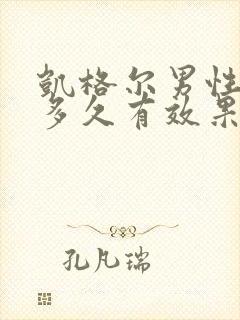 凯格尔男性
多久有效果
孔凡瑞